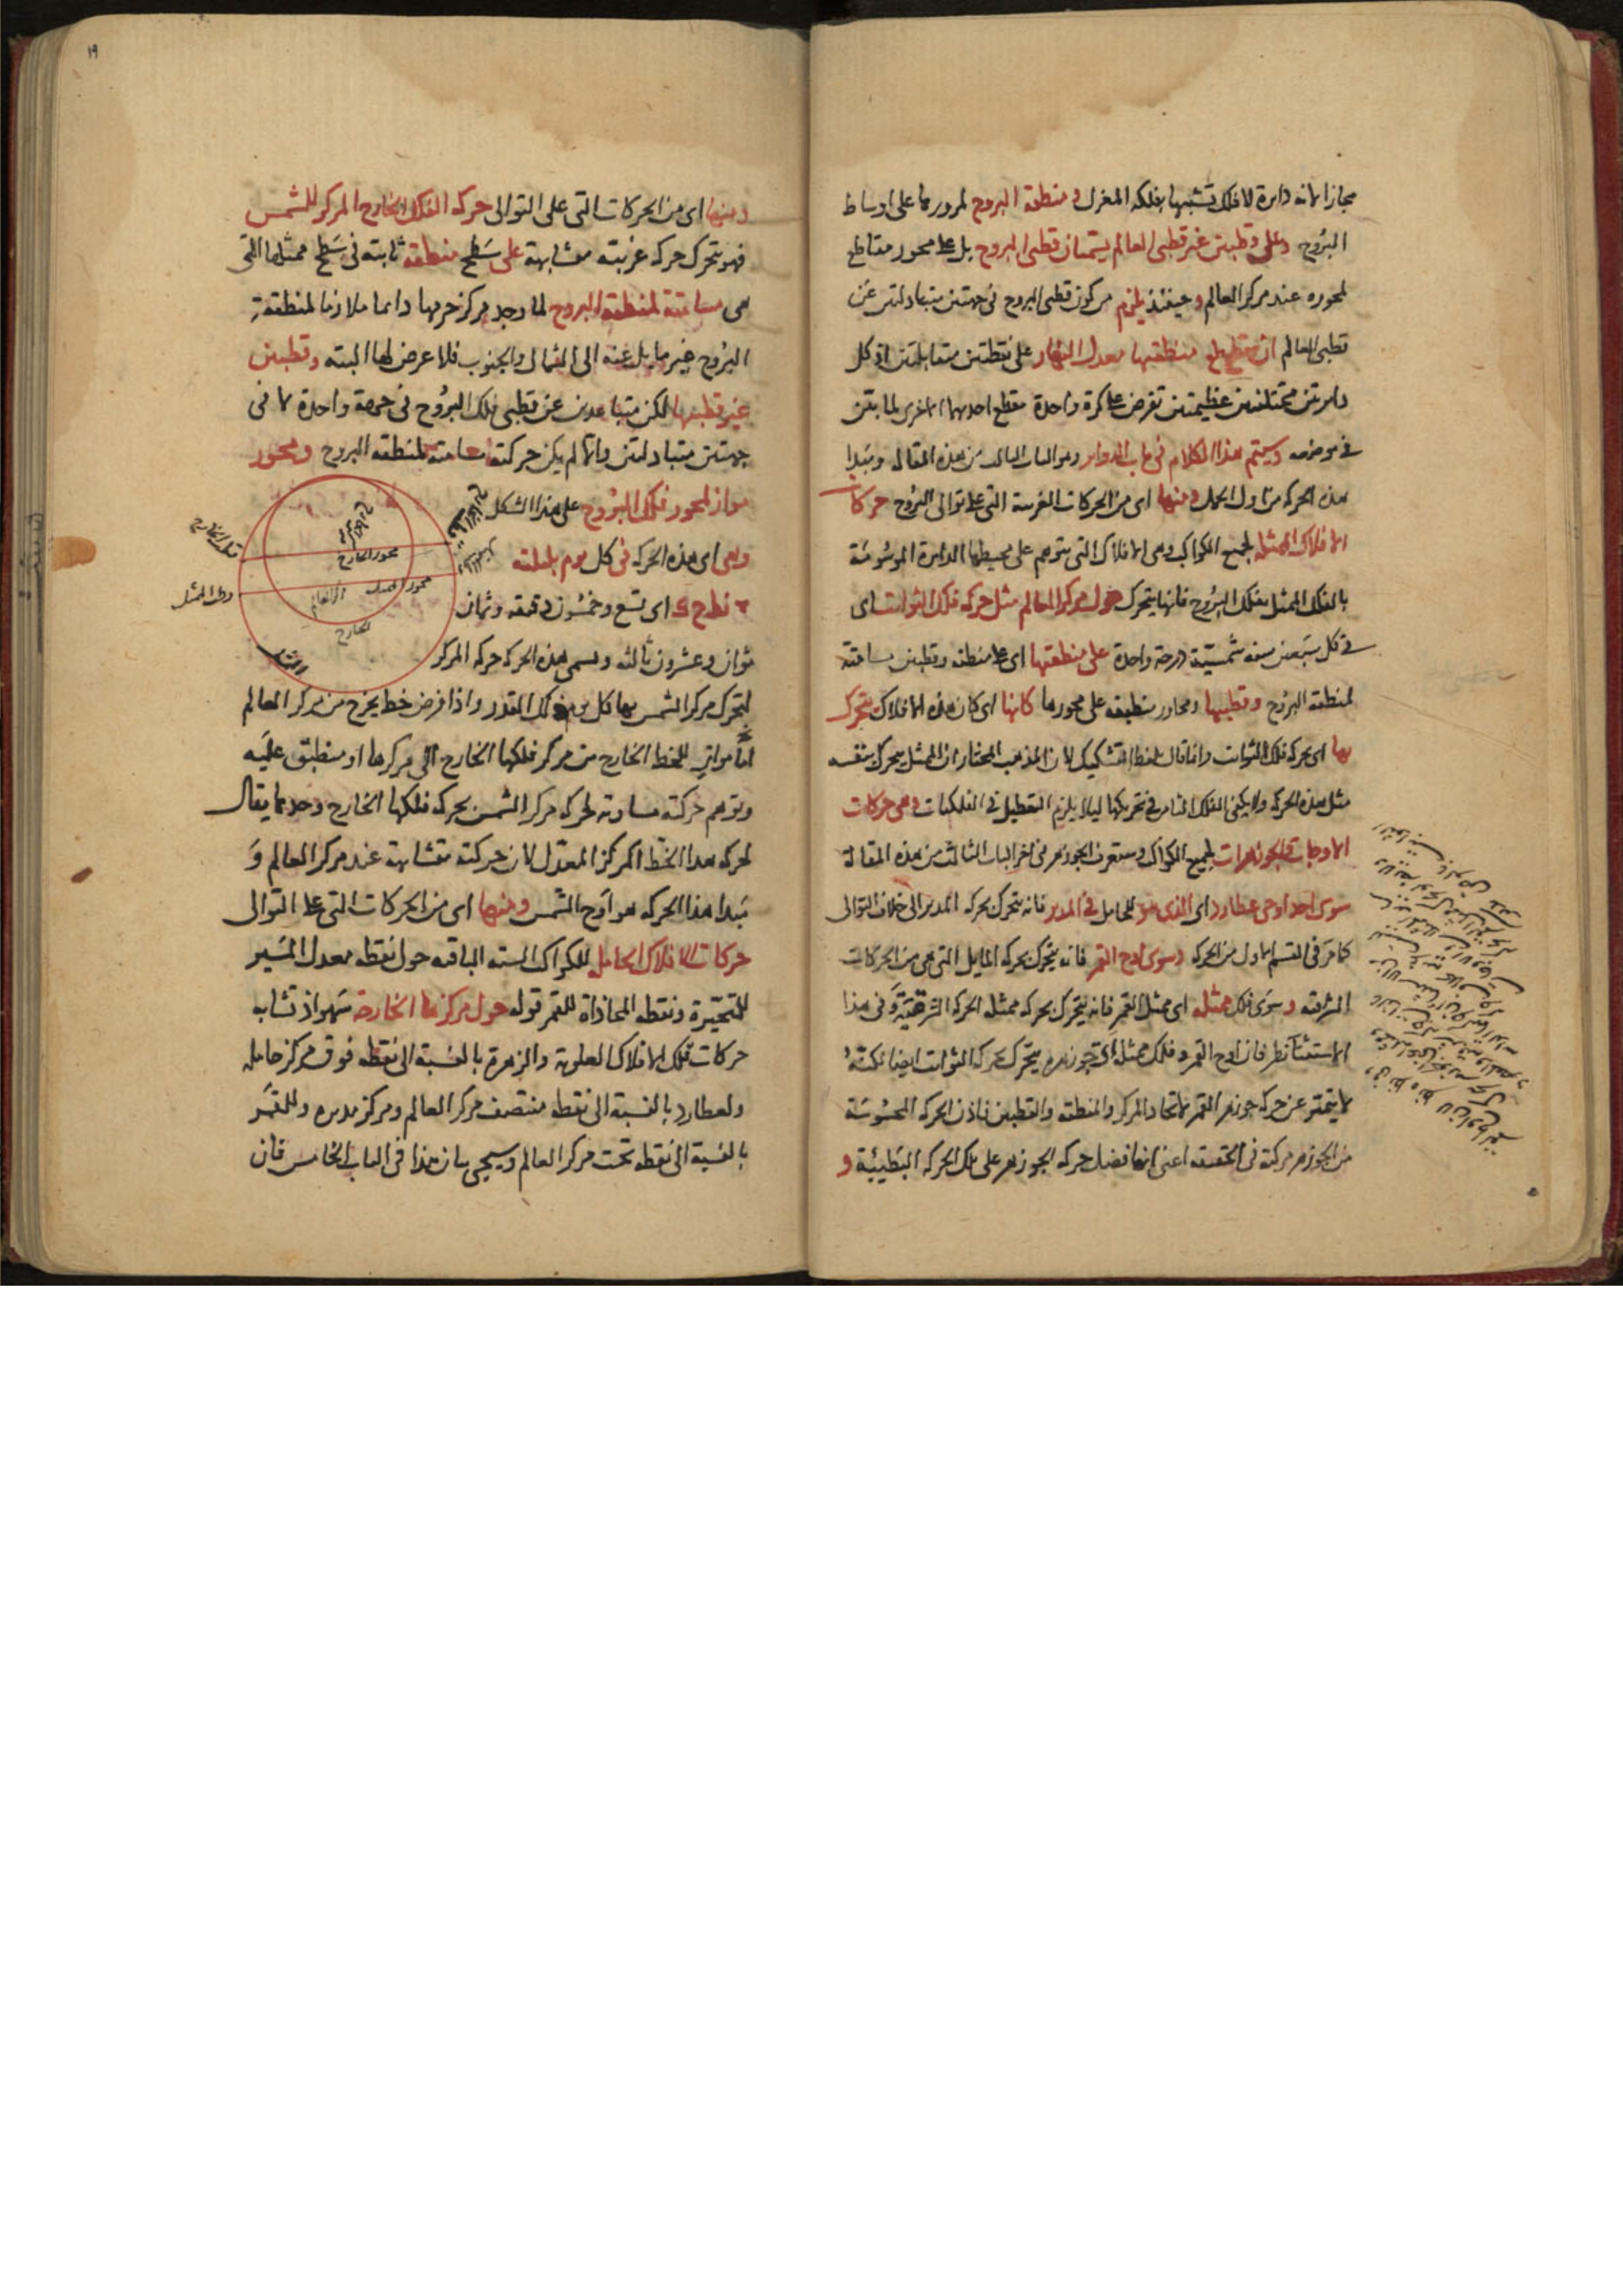 مجازا لانه دايرة لا فلك تشبيها بفلكه المغزل ومنطقة البروج لمرورها على اوساط
البروج وعلى قطبين غير قطبى العالم يسميان قطبى البروج بل على محور مقاطع
لمحوره عند مركز العالم وحينئذ يلزم مركون قطبى البروج فى جهتين متبادلتين عن
قطبى العالم ان يقطع منطقتها معدل النهار على نقطتين متقابلتين اذ كل
دايرتين مختلفتين عظيمتين تفرض على كرة واحدة مقطع احديهما الاخرى لما بتن
فى موضعه وسيتم هذا الكلام فى باب الدواير وهو الباب الثالث من هذه المقالة ويبدا
هذه الحركة من اول الحمل ومنها اى من الحركات الغربية التى على توالى البروج حركات
الافلاك الممثلة لجميع الكواكب وهى الافلاك التى يتوهم على محيطها الدايرة الموسومة
بالفلك الممثل بفلك البروج فانها يتحرك حول مركز العالم مثل حركة فلك الثوابت اى
فى كل سبعين سنة شمسية درجة واحدة على منطقتها اى على منطقة وقطبين مسامتة
لمنطقة البروج وقطبيها ومحاور منطبقة على محورها كانها اى كان هذه الافلاك يتحرك
بها اى بحركة فلك الثوابت وانما قال بلفظ التشكيك لان المذهب المختار ان الممثل يتحرك بنفسه
مثل هذه الحركة ولا يكفى الفلك الثامن فى تحريكها ليلا يلزم التعطيل فى الفلكيات وهى حركات
الاوجات والجوزهرات لجميع الكواكب وستعرف الجوزهر فى اخر الباب الثالث من هذه المقالة
سوى احد اوجى عطارد اى الذى هو للحامل فى المدير فانه يتحرك بحركة المدير الى خلاف التوالى
كما مر فى القسم الاول من الحركة وسوى اوج القمر فانه يتحرك بحركة المايل التى هى من الحركات
الشرقية وسوى فلك ممثله اى ممثل القمر فانه يتحرك بحركة ممثله الحركة الشرقية وفى هذا
الاستثنا نظر فان اوج القمر وفلك ممثله اى جوزهره يتحرك بحركة الثوابت ايضا لكنه
لا يتميز عن حركة جوزهر القمر لاتحاد المركز والمنطقة والقطبين فاذن الحركة المحسوسة
من الجوزهر مركبة فى الحقيقة اعنى انها فضل حركة الجوزهر على تلك الحركة البطيئة و
١٩
ومنها اى من الحركات التى على التوالى حركة الفلك الخارج المركز للشمس
فهو يتحرك حركة غربية متشابهة على سطح منطقة ثابتة فى سطح ممثلها التى
هى مسامتة لمنطقة البروج لما وجد مركز جرمها دايما ملازما لمنطقة
البروج غير مايل عنه الى الشمال والجنوب فلا عرض لها البتة وقطبين
غير قطبيها لكن متباعدين عن قطبى فلك البروج فى جهة واحدة لا فى
جهتين متبادلتين والا لم يكن حركتها مسامتة لمنطقة البروج ومحور
مواز لمحور فلك البروج على هذا الشكل
وهى اى هذه الحركة فى كل يوم بليلته
نط ح ك اى تسع وخمسون دقيقة وثمان
ثوان وعشرون ثالثة ويسمى هذه الحركة حركة المركز
لتحرك مركز الشمس بها كل يوم ذلك القدر واذا فرض خط يخرج من مركز العالم
اما مواز للخط الخارج من مركز فلكها الخارج الى مركزها او منطبق عليه
ويتوهم حركته مساوية لحركة مركز الشمس بحركة فلكها الخارج وحدها يقال
لحركة هذا الخط المركز المعدل لان حركته متشابهة عند مركز العالم و
مبدا هذا الحركة هو اوج الشمس ومنها اى من الحركات التى على التوالى
حركات الافلاك الحاملة للكواكب الستة الباقية حول نقطة معدل المسير
للمتحيرة ونقطة المحاذاة للقمر قوله حول مركزها الخارجة سهو اذ تشابه
حركات تلك الافلاك للعلوية والزهرة بالنسبة الى نقطة فوق مركز حامله
ولعطارد بالنسبة الى نقطة منتصف مركز العالم ومركز مديره وللقمر
بالنسبة الى نقطة تحت مركز العالم وسيجى بيان هذا فى الباب الخامس فان
قطب الخارج
محور الخارج
قطب الممثل
محور الممثل
مركز العالم
الخارج